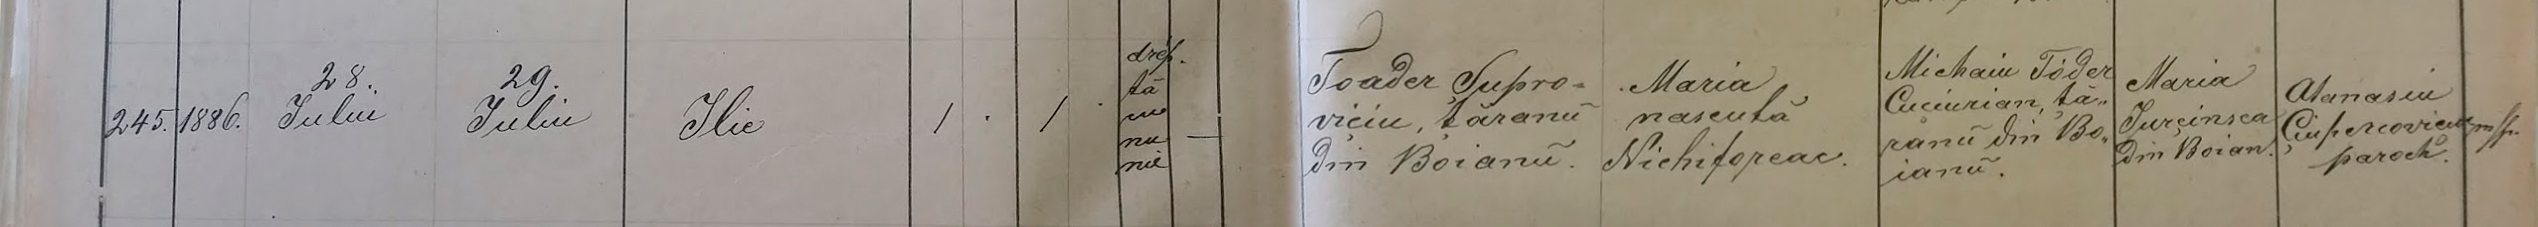 245.
1886.
28.
Iuliu
29.
Iuliu
Ilie
1
1
drép.
tă
me
nu
nié
Toader Supro-
viciu, țăranŭ
din Boianŭ.
Maria
născută
Nichiforeac.
Michaiu Tóder
Cuciurian, ță-
ranŭ din Bo-
ianŭ.
Maria
Jurcinsca
din Boian.
Atanasiu
Ciupercoviciu
paroch.